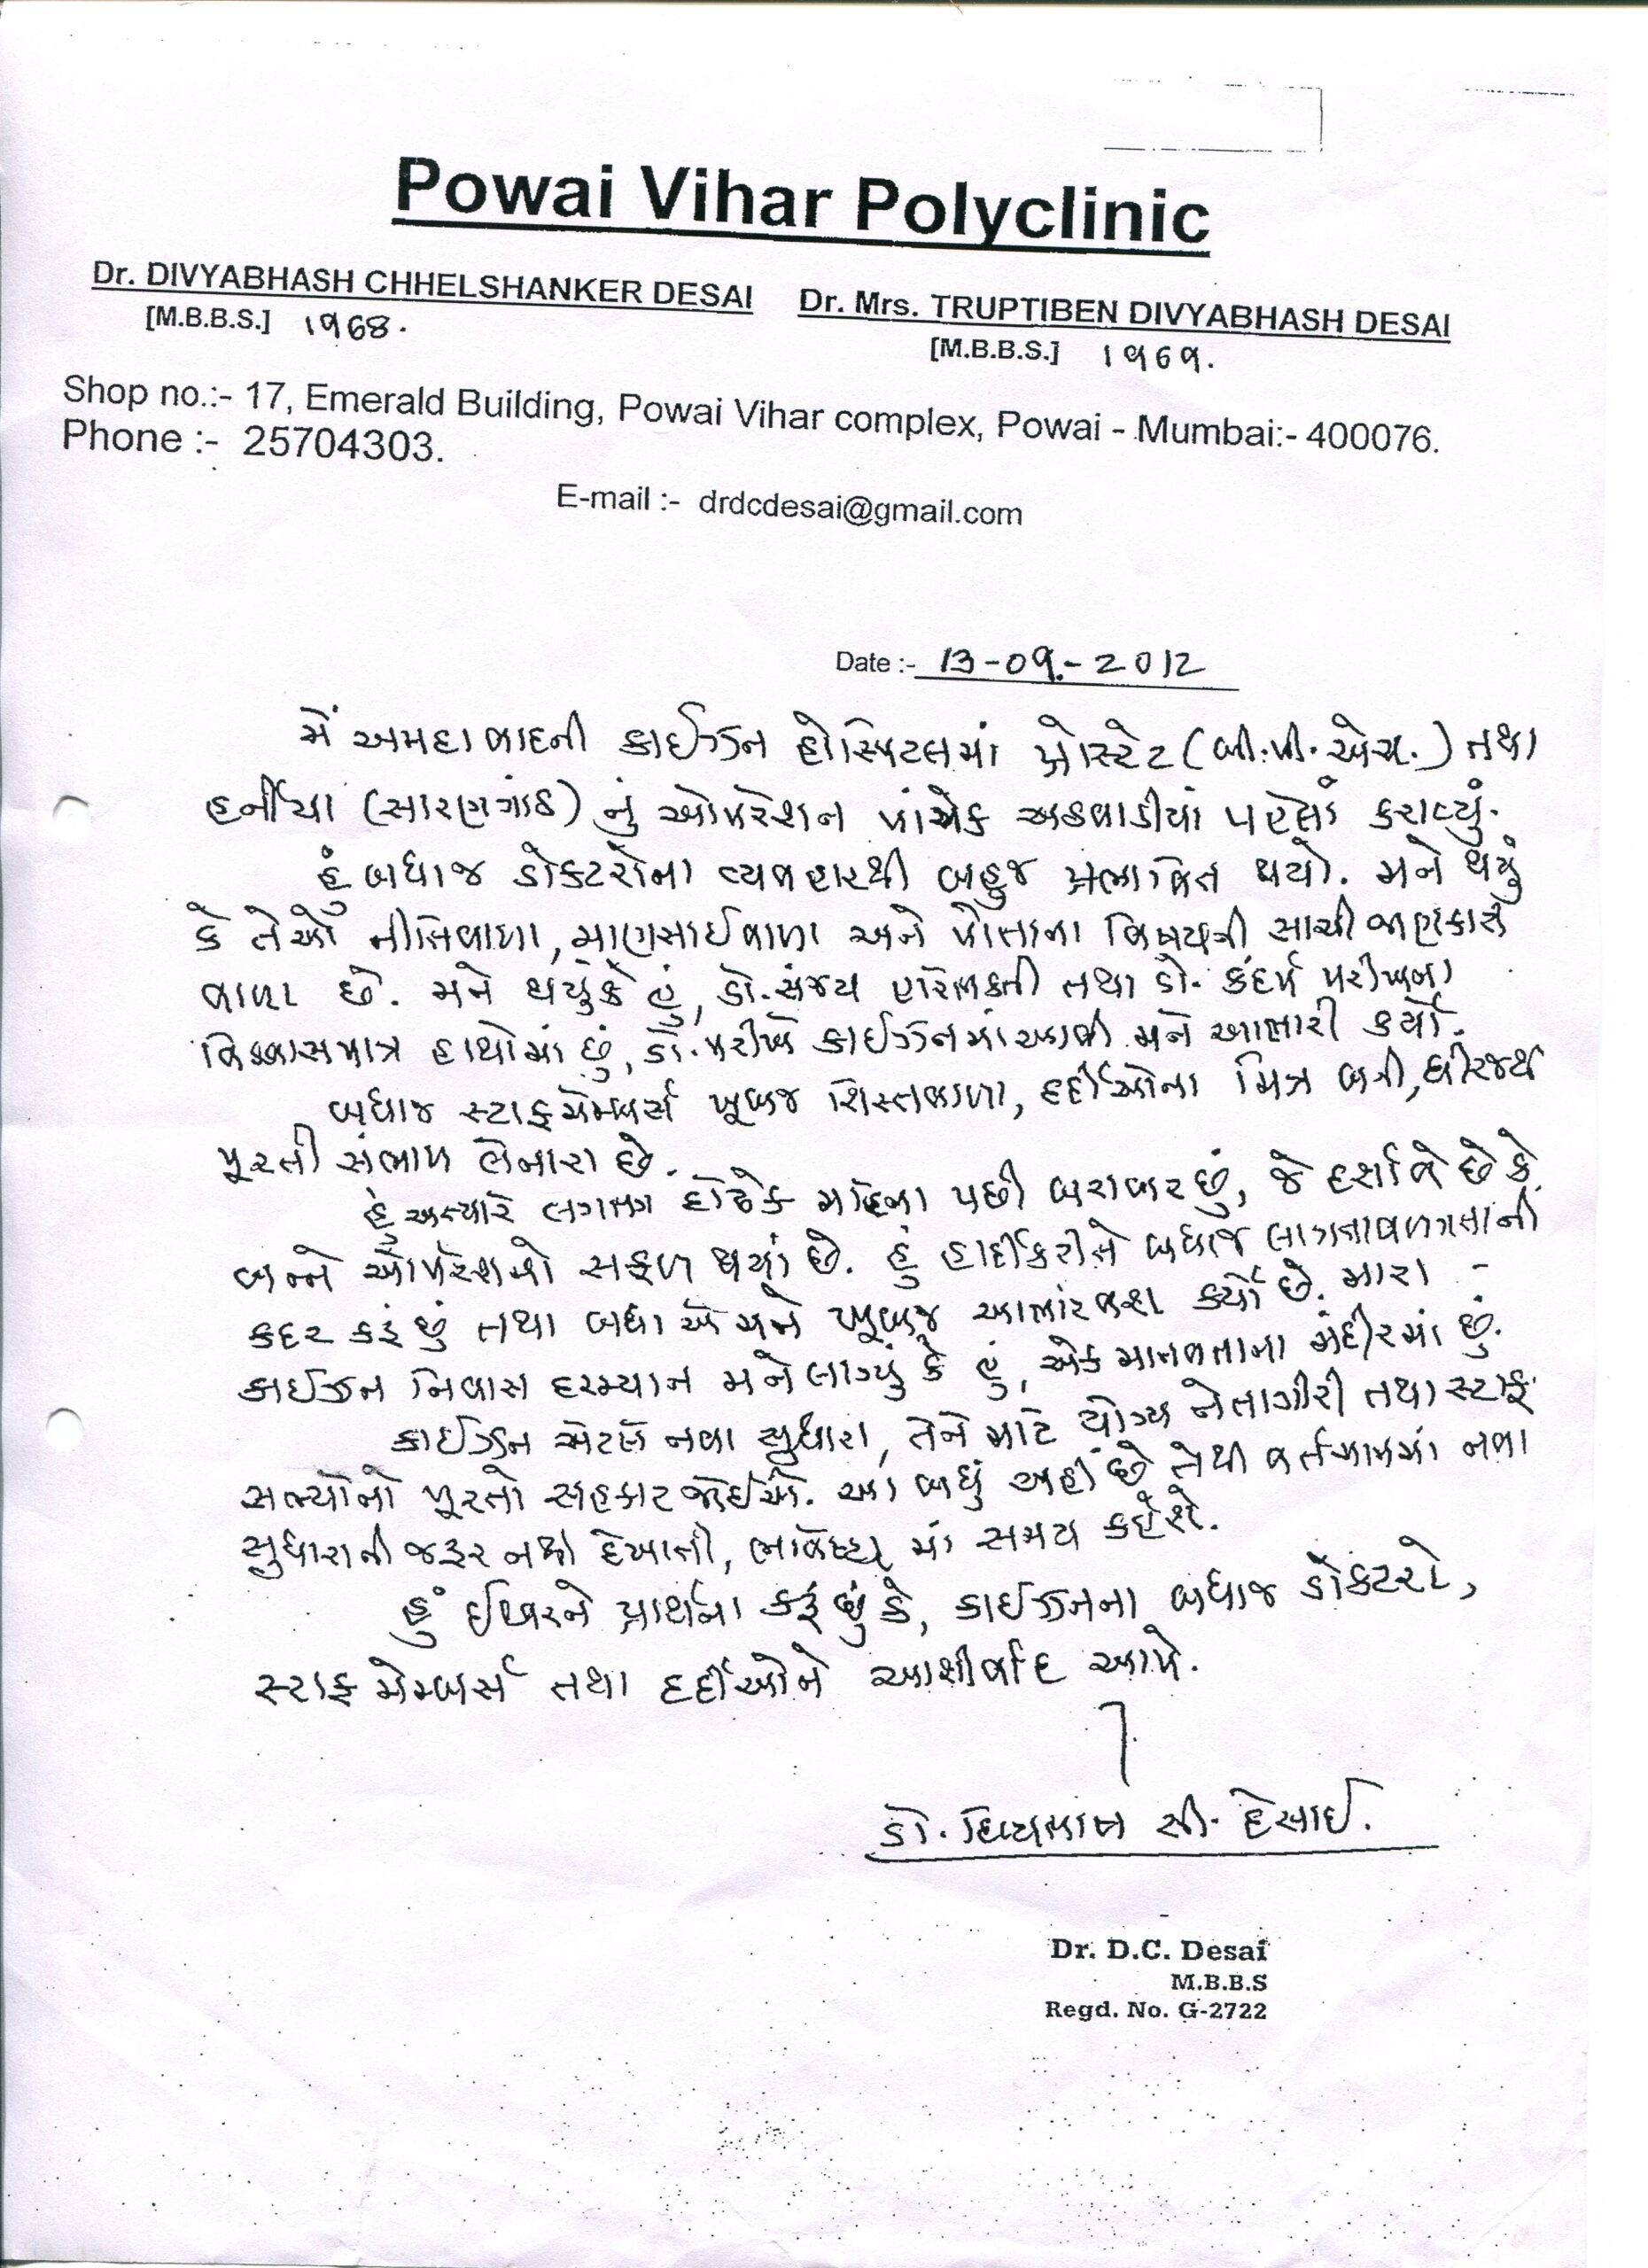 Powai Vihar Polyclinic
Dr. DIVYABHASH CHHELSHANKER DESAI Dr. Mrs. TRUPTIBEN DIVYABHASH DESAI
[M.B.B.S.] 1968. [M.B.B.S.] 1969.
Shop no.:- 17, Emerald Building, Powai Vihar complex, Powai - Mumbai:- 400076.
Phone :- 25704303.
E-mail :- drdcdesai@gmail.com
Date :- 13-09.-2012
મેં અમદાવાદની કાઈઝન હોસ્પિટલમાં પ્રોસ્ટેટ (બી.પી.એચ.) તથા
હર્નીયા (સારણગાંઠ) નું ઓપરેશન પાંચેક અઠવાડીયાં પહેલાં કરાવ્યું.
હું બધાજ ડોકટરોના વ્યવહારથી બહુજ પ્રભાવિત થયો. મને થયું
કે તેઓ નીતિવાળા, માણસાઈવાળા અને પોતાના વિષયની સાચી જાણકારી
વાળા છે. મને થયુંકે હું, ડો.સંજય તથા ડો. કંદર્પ પરીખના
વિશ્વાસપાત્ર હાથોમાં છું, ડો.પરીખે કાઈઝનમાં આવી મને આભારી કર્યો.
બધાજ સ્ટાફમેમ્બર્સ ખૂબજ શિસ્તવાળા, દર્દીઓના મિત્ર બની, ધીરજથી
પૂરતી સંભાળ લેનારા છે.
હું અત્યારે લગભગ દોઢેક મહિના પછી બરાબર છું, જે દર્શાવે છે કે
બન્ને ઓપરેશનો સફળ થયાં છે. હું હાર્દીકરીતે બધાજ લાગતાવળગતાંની
કદર કરૂં છું તથા બધાએ મને ખૂબજ આભારવશ કર્યો છે. મારા -
કાઈઝન નિવાસ દરમ્યાન મને લાગ્યું કે હું, એક માનવતાના મંદીરમાં છું.
કાઈઝન એટલે નવા સુધારા, તેને માટે યોગ્ય નેતાગીરી તથા સ્ટાફ
સભ્યોનો પૂરતો સહકાર જોઈએ. આ બધું અહીં છે તેથી વર્તમાનમાં નવા
સુધારાની જરૂર નથી દેખાતી, ભવિષ્ય માં સમય કહેશે.
હું ઈશ્વરને પ્રાર્થના કરૂં છું કે, કાઈઝનના બધાજ ડોકટરો,
સ્ટાફ મેમ્બર્સ તથા દર્દીઓને આશીર્વાદ આપે.
ડો. દિવ્યભાષ સી. દેસાઈ.
Dr. D.C. Desai
M.B.B.S
Regd. No. G-2722